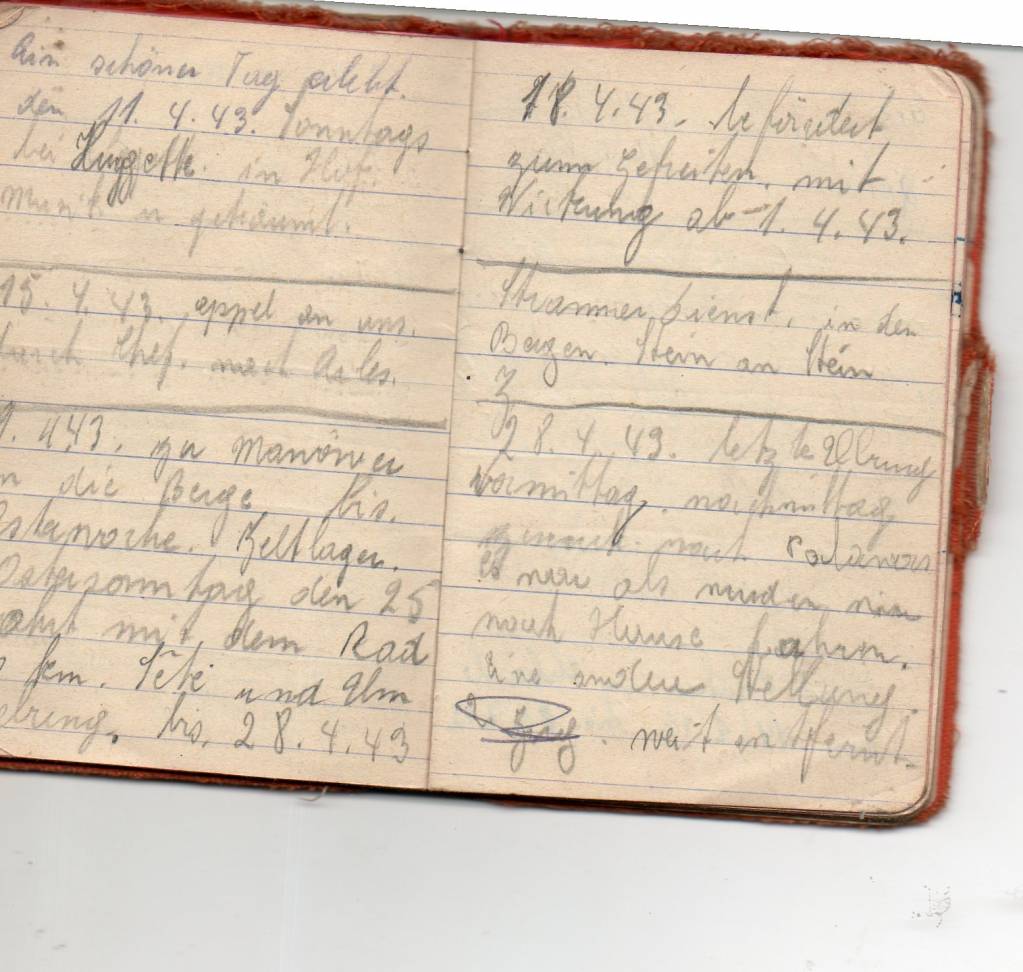 Ein schöner Tag erlebt.
den 11. 4. 43. Sonntags
bei Hugette. in Hof.
Musik u geträumt.
15. 4. 43. appel an uns.
durch Chef. nach Arles.
4.43. zu Manöver
die Berge bis.
Zeltlager.
Ostersonntag den 25
mit dem Rad
km. und
bis. 28. 4. 43
18. 4. 43. befördert
zum Gefreiten. mit
Wirkung ab 1. 4. 43.
Strammer Dienst. in den
Bergen. Stein an Stein
28. 4. 43. letzte
Vormittag. nachmittag
nach
es war als würden wir
nach Hause fahren.
Eine andere Stellung.
weit entfernt.